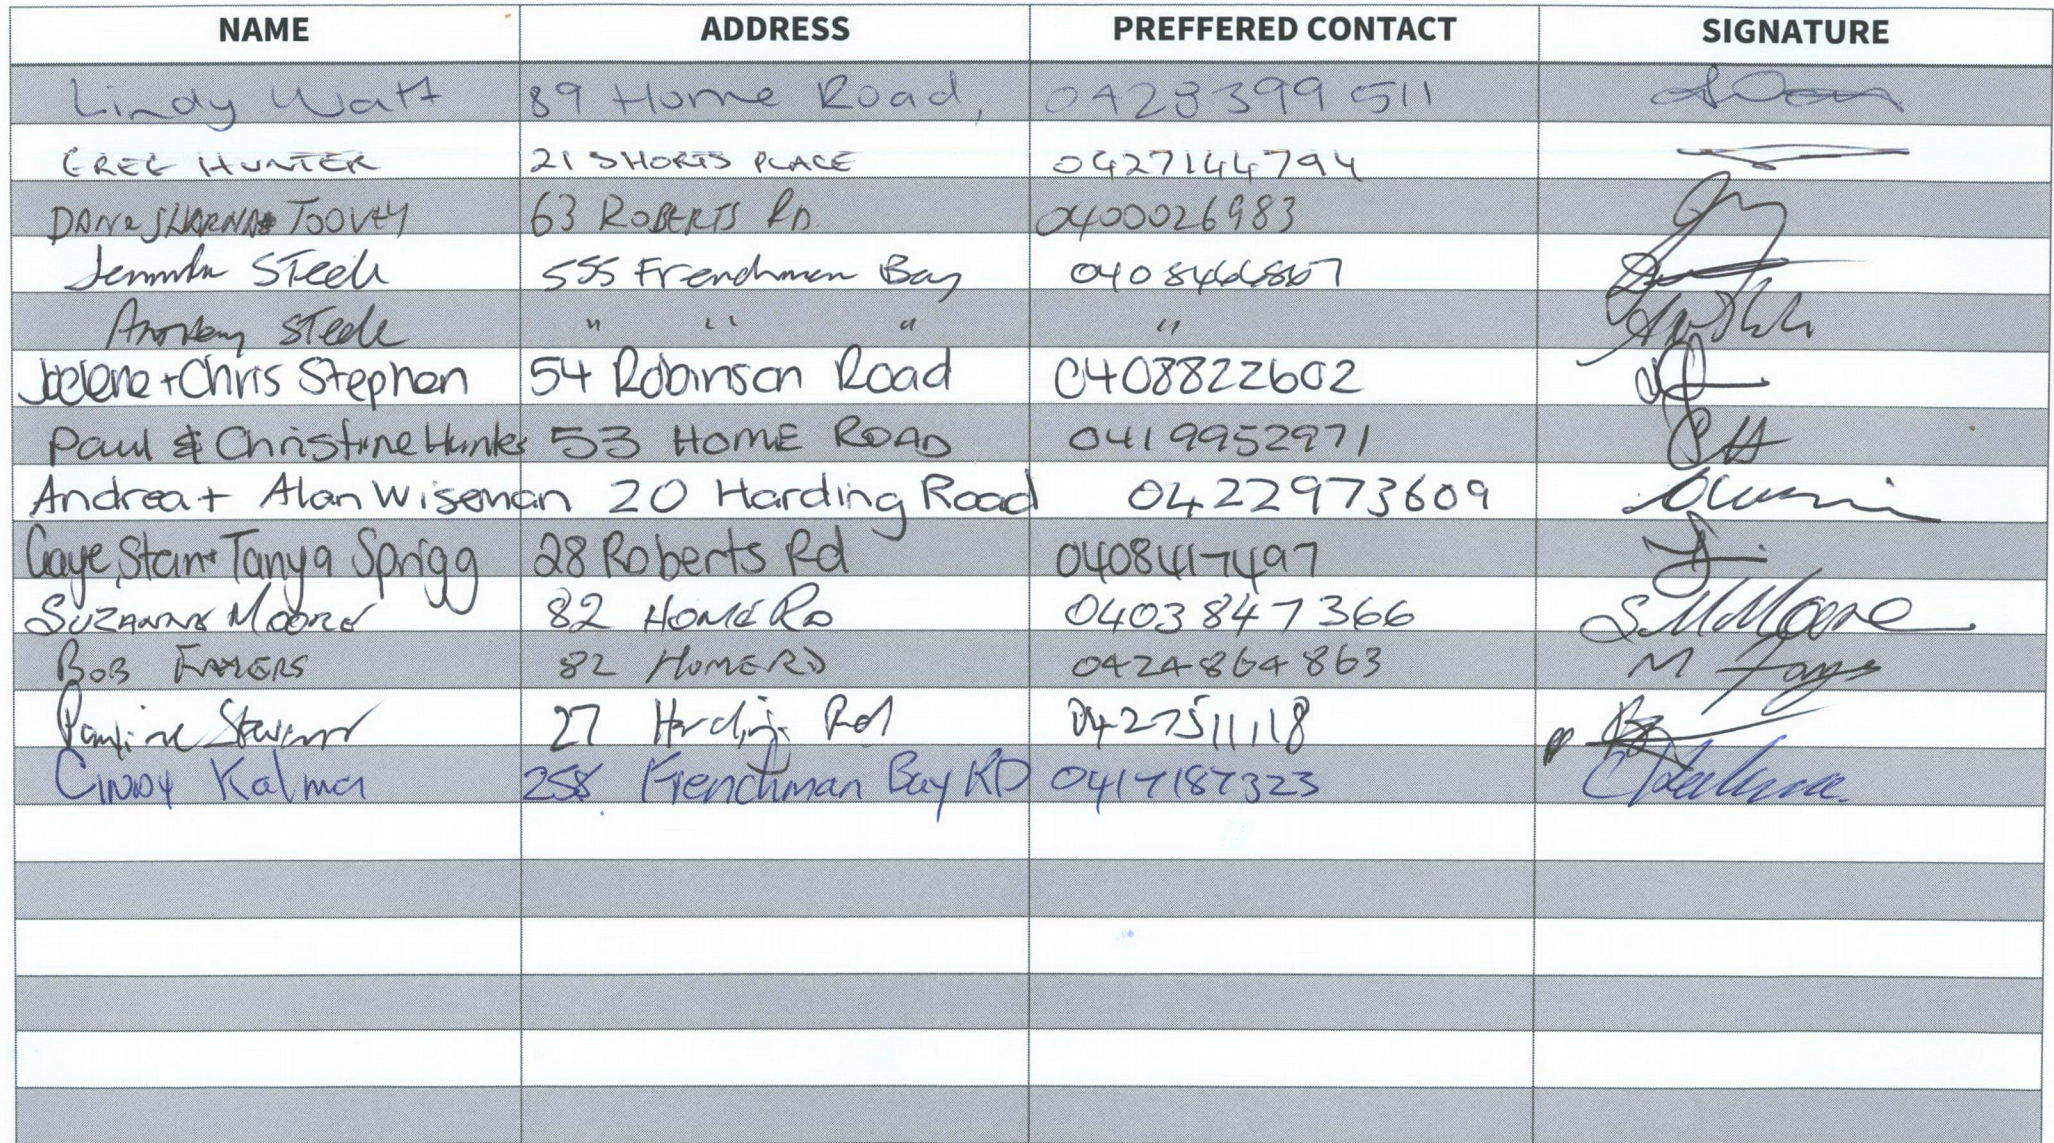 NAME ADDRESS PREFFERED CONTACT SIGNATURE
Lindy Watt 89 Home Road, 0428399511
GREG HUNTER 21 SHORTS PLACE 0427144794
DAN & SHARNA TOOVEY 63 ROBERTS RD. 0400026983
Steele 555 Frenchman Bay
Anthony Steele " " " "
Joelene + Chris Stephen 54 Robinson Road 0408822602
Paul & Christine Hunter 53 HOME ROAD 0419952971
Andrea + Alan Wiseman 20 Harding Road 0422973609
Gaye, Stan + Tanya Sprigg 28 Roberts Rd 0408417497
SUZANNE MOORE 82 HOME RD 0403847366 S M Moore
BOB 82 HOME RD 0424864863 M
Pauline 27 Harding Rd 0427511118
CINDY Kalma 258 Frenchman Bay RD 0417187323